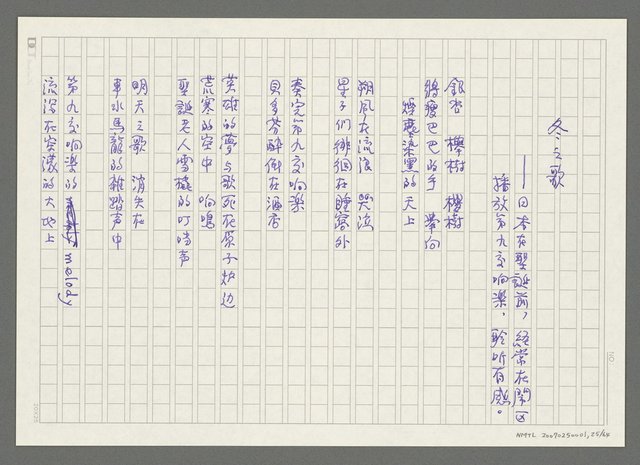 冬之歌
——日本在聖誕前,經常在鬧区
播放第九交响楽,聆听有感。
銀杏 櫸樹 櫻樹
將瘦巴巴的手 舉向
煙塵漆黑的天上
朔風在流浪 哭泣
星子們徘徊在鐘窗外
奏完第九交响楽
貝多芬醉倒在酒店
英雄的夢与歌死在原子炉边
荒寒的空中 响鳴
聖誕老人雪橇的叮噹声
明天之歌 消失在
車水馬龍的雜踏声中
第九交响楽的 melody
流浪在空漠的大地上
NMTL 20070250001,25/64
NO.
20X25